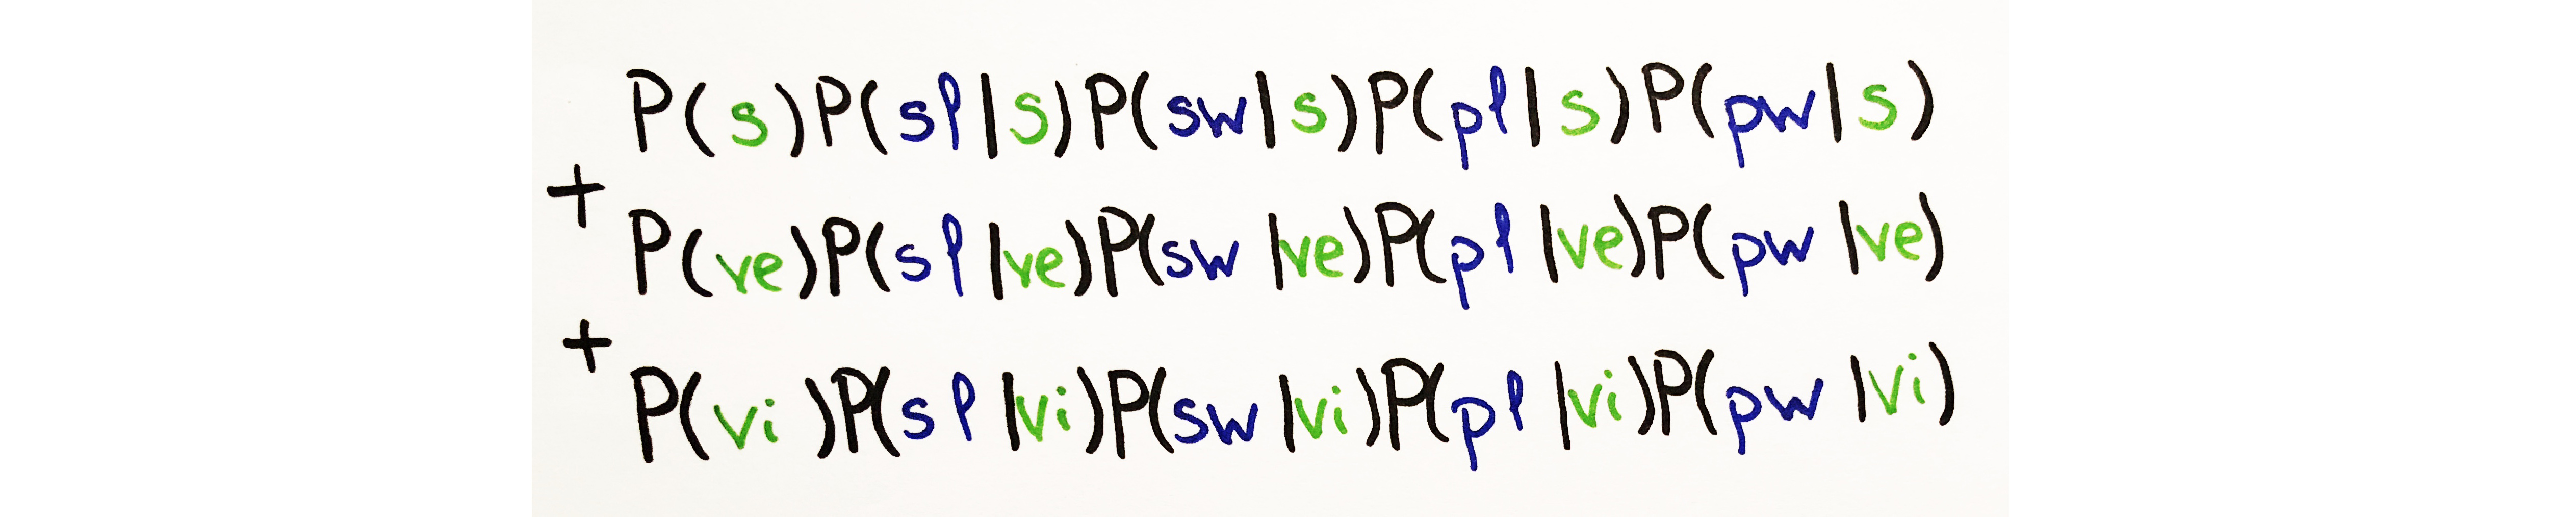 P(s)P(sl|s)P(sw|s)P(pl|s)P(pw|s)
+
P(ve)P(sl|ve)P(sw|ve)P(pl|ve)P(pw|ve)
+
P(vi)P(sl|vi)P(sw|vi)P(pl|vi)P(pw|vi)